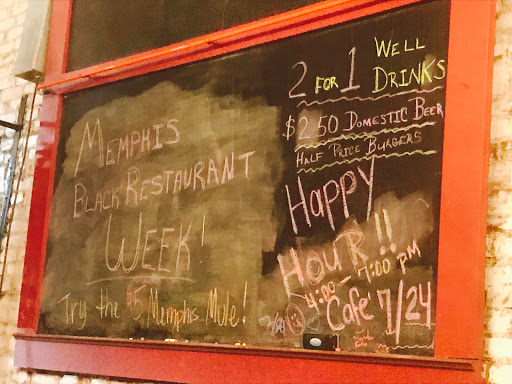 MEMPHIS
BLACK RESTAURANT
WEEK!
Try the $5 Memphis Mule!
2 FOR 1 WELL
DRINKS
$2.50 DOMESTIC BEER
HALF PRICE BURGERS
Happy
HOUR!!
4:00 - 7:00 PM
Cafe 7/24